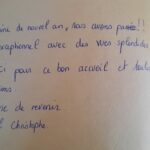 ine de nouvel an, nous avons passé!!
exceptionnel avec des vues splendides
ci pour ce bon accueil et toutes
ions.
ie de revenir.
l Christophe.